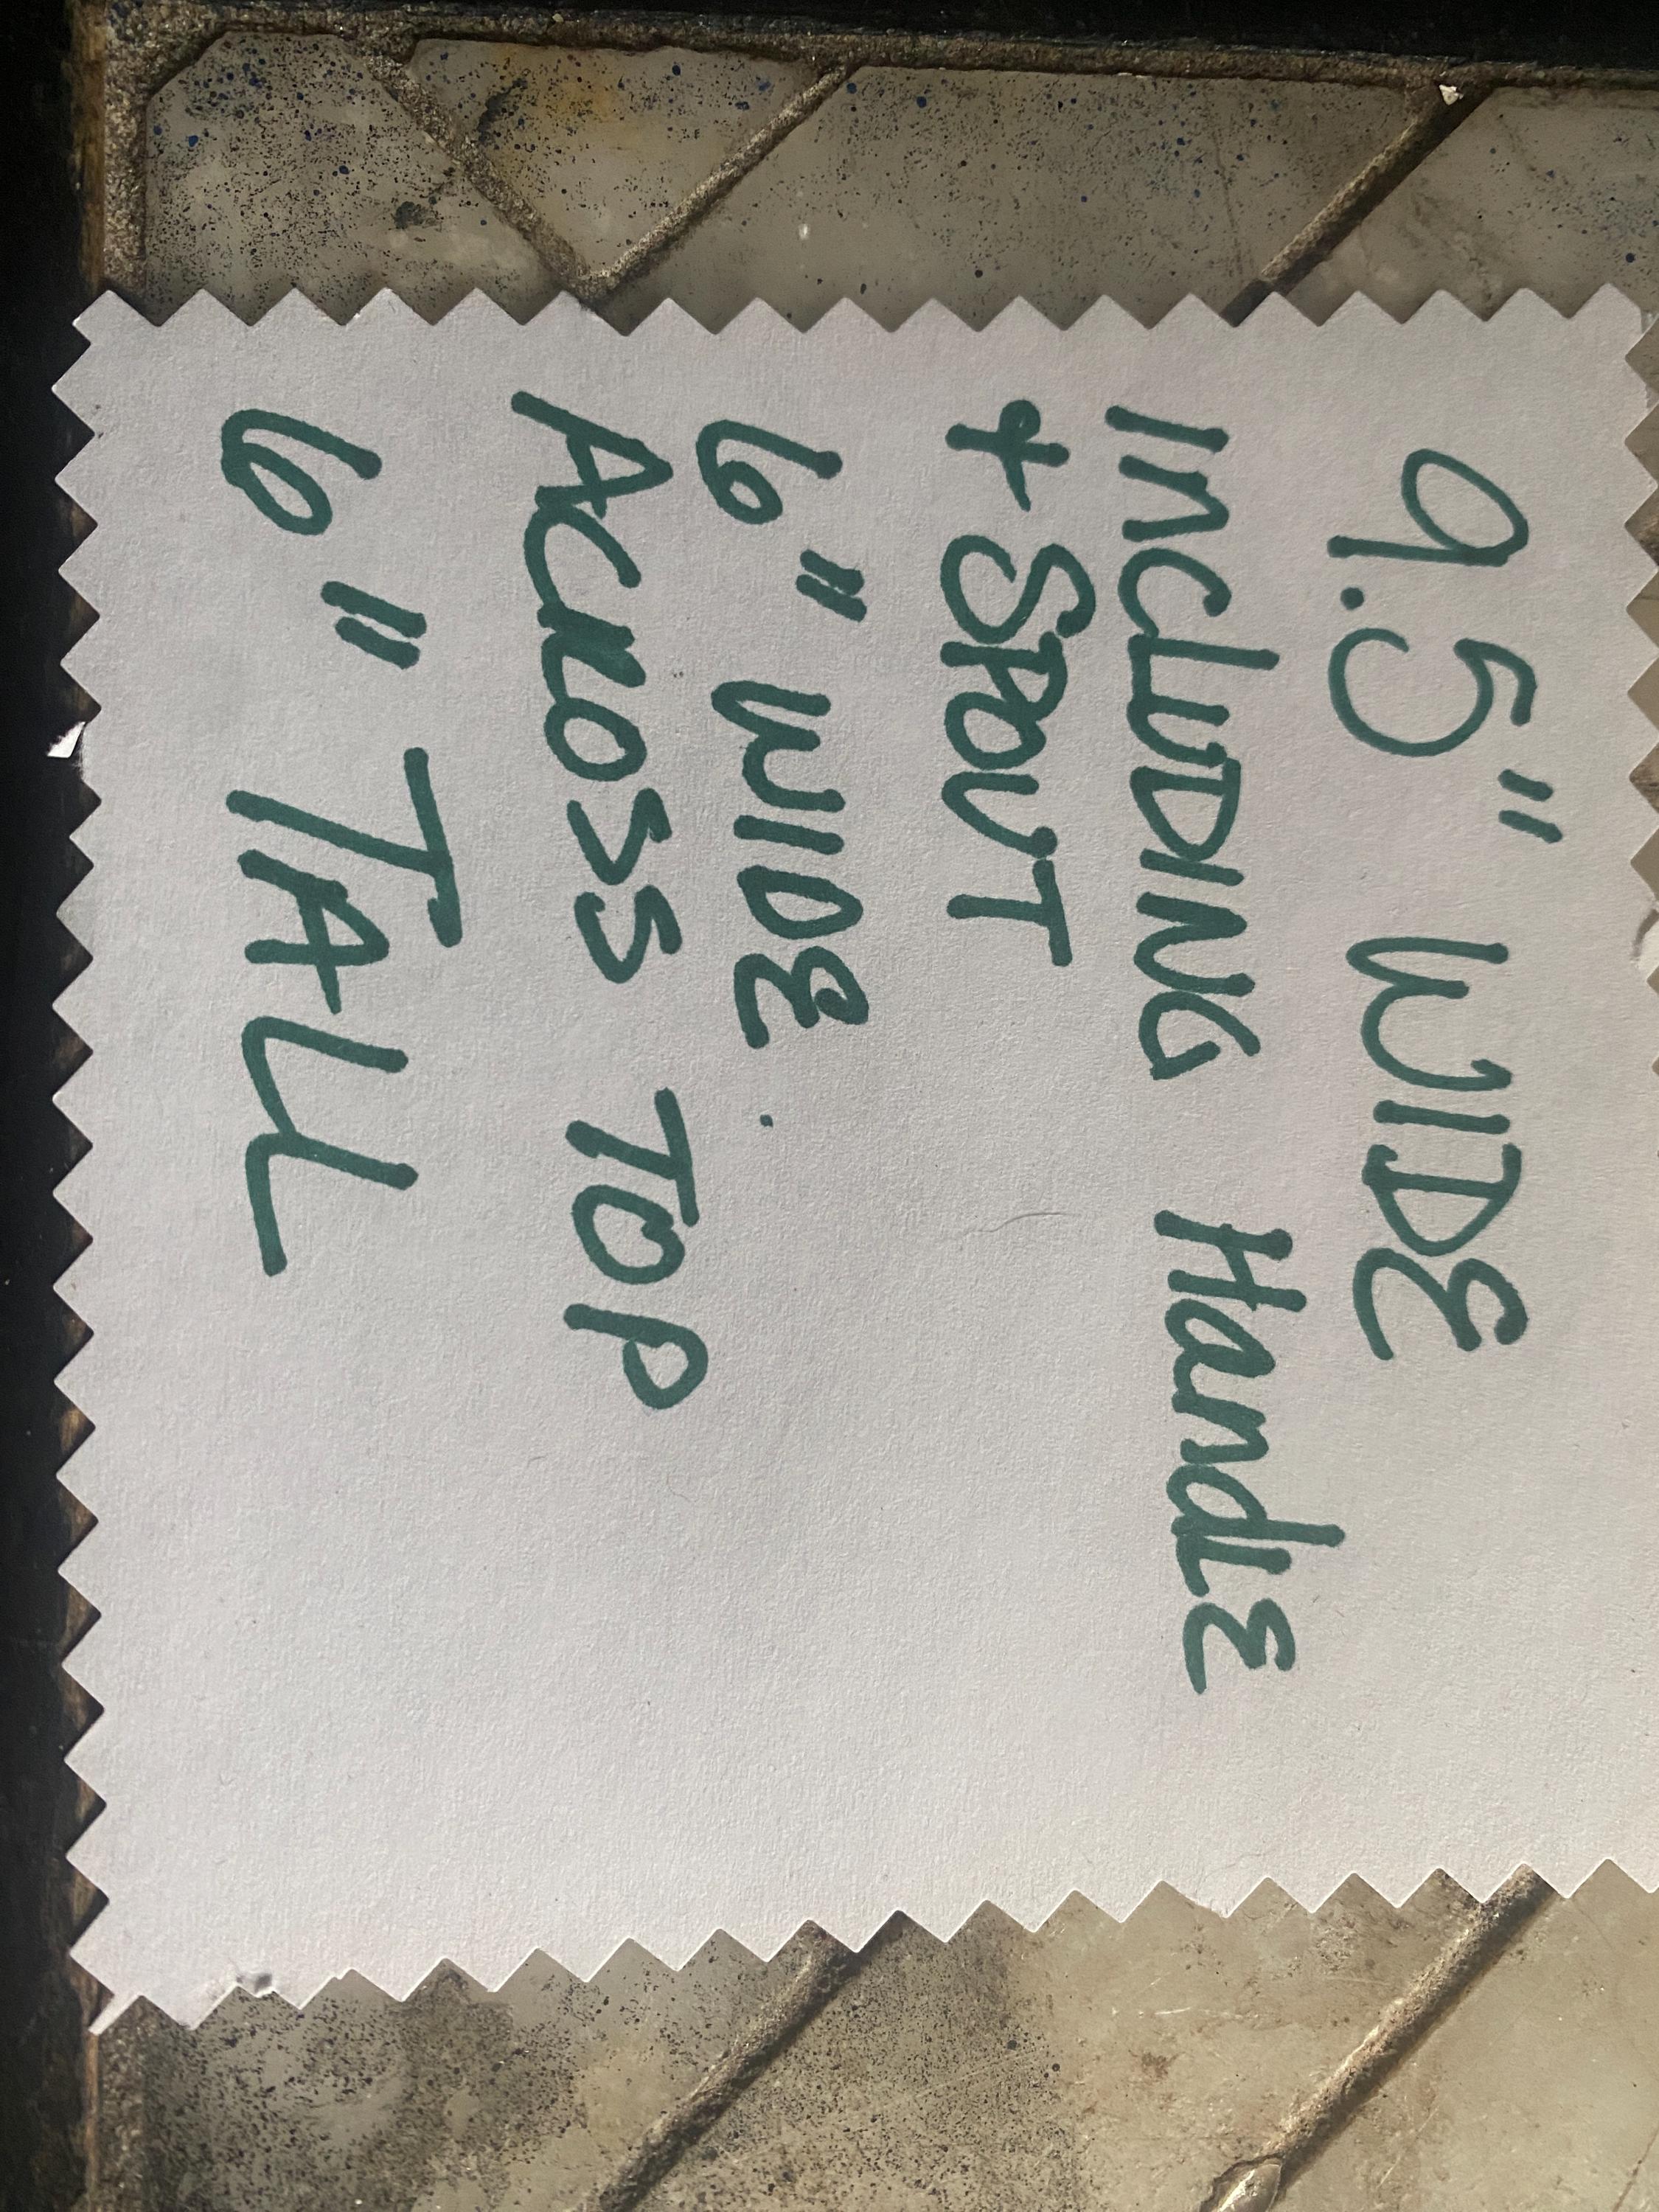 9.5" WIDE
INCLUDING HandlE
+ SPOUT
6" WIDE.
ACROSS TOP
6" TALL